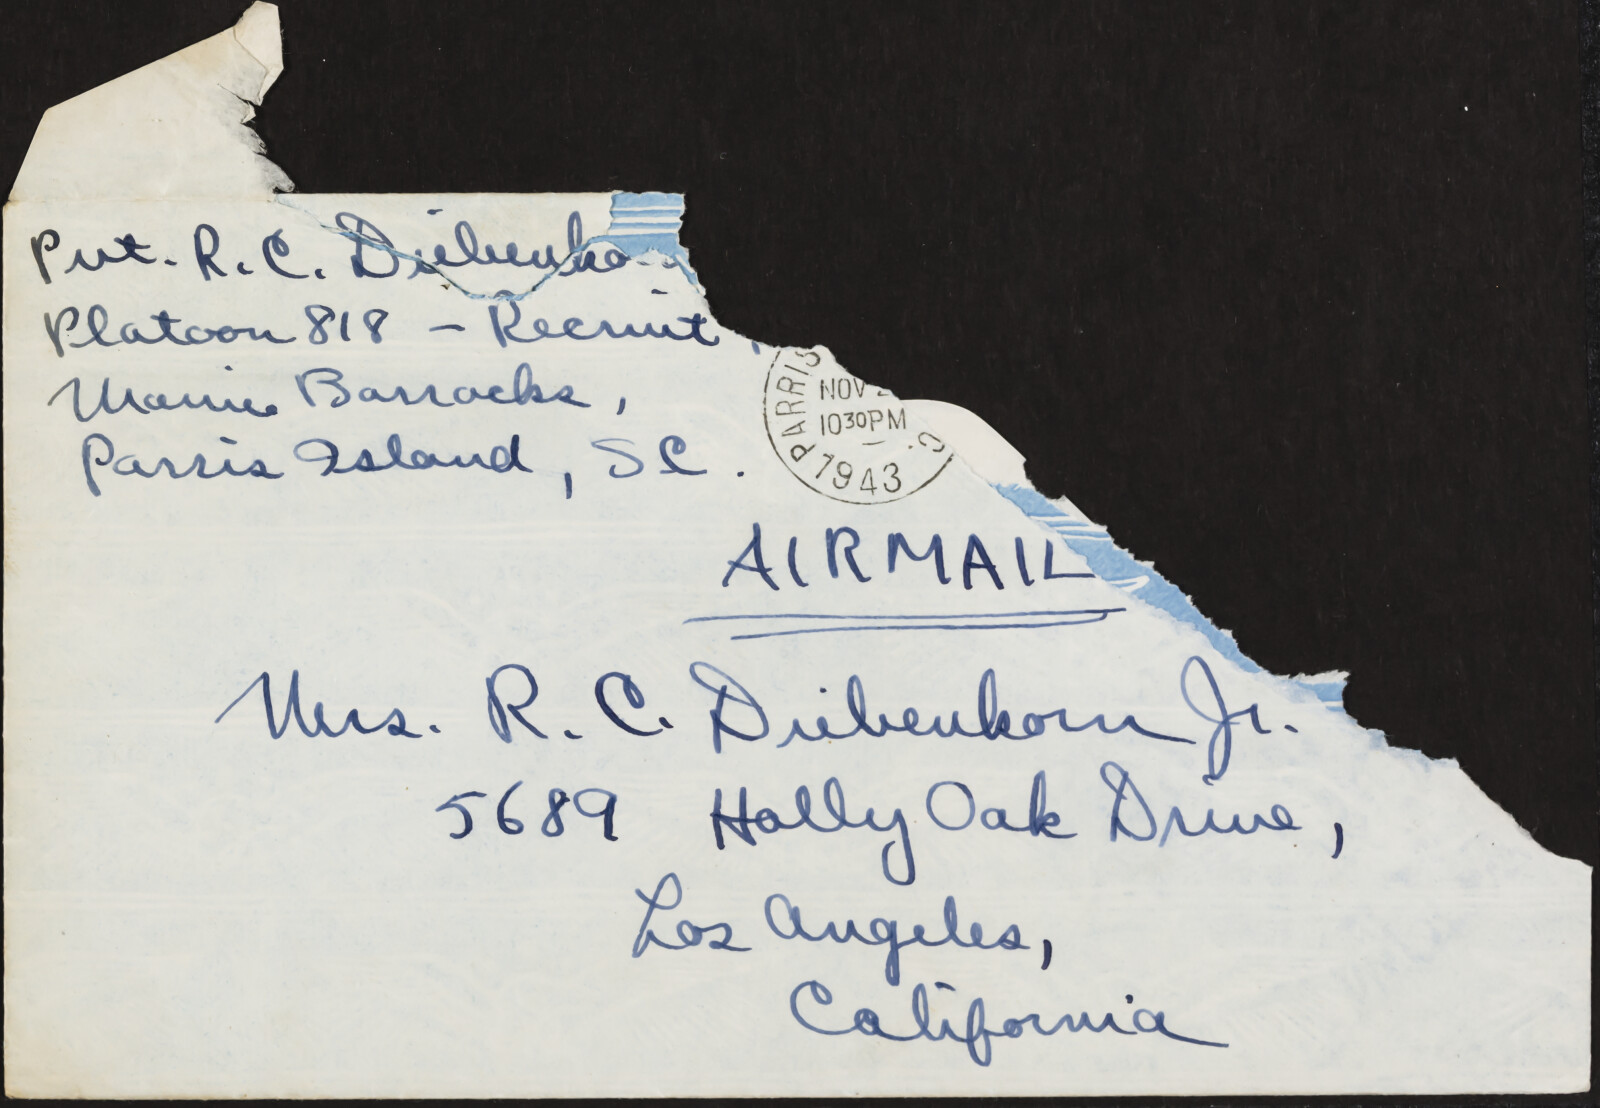 Pvt. R. C. Diebenko
Platoon 818 - Recruit
Marine Barracks,
Parris Island, SC.
PARRIS
NOV 2
1030PM
C.
1943
AIRMAIL
Mrs. R. C. Diebenkorn Jr.
5689 Holly Oak Drive,
Los Angeles,
California